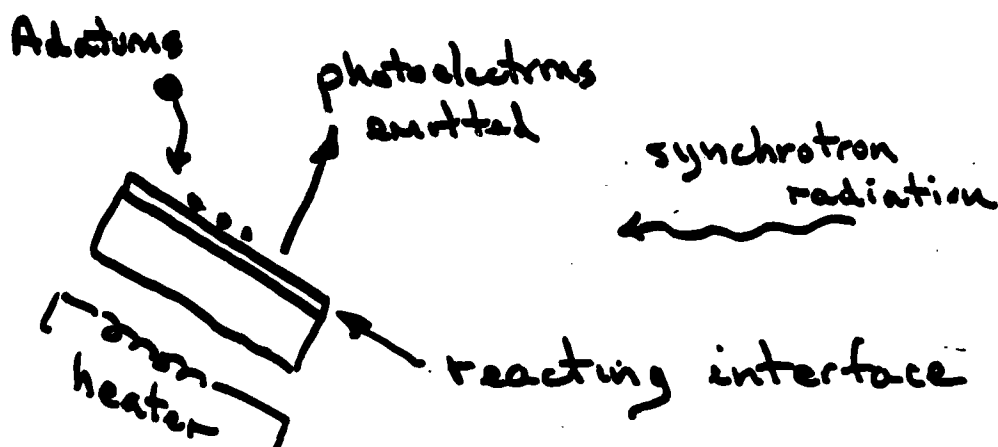 Adatoms
photoelectrons
emitted
synchrotron
radiation
reacting interface
heater